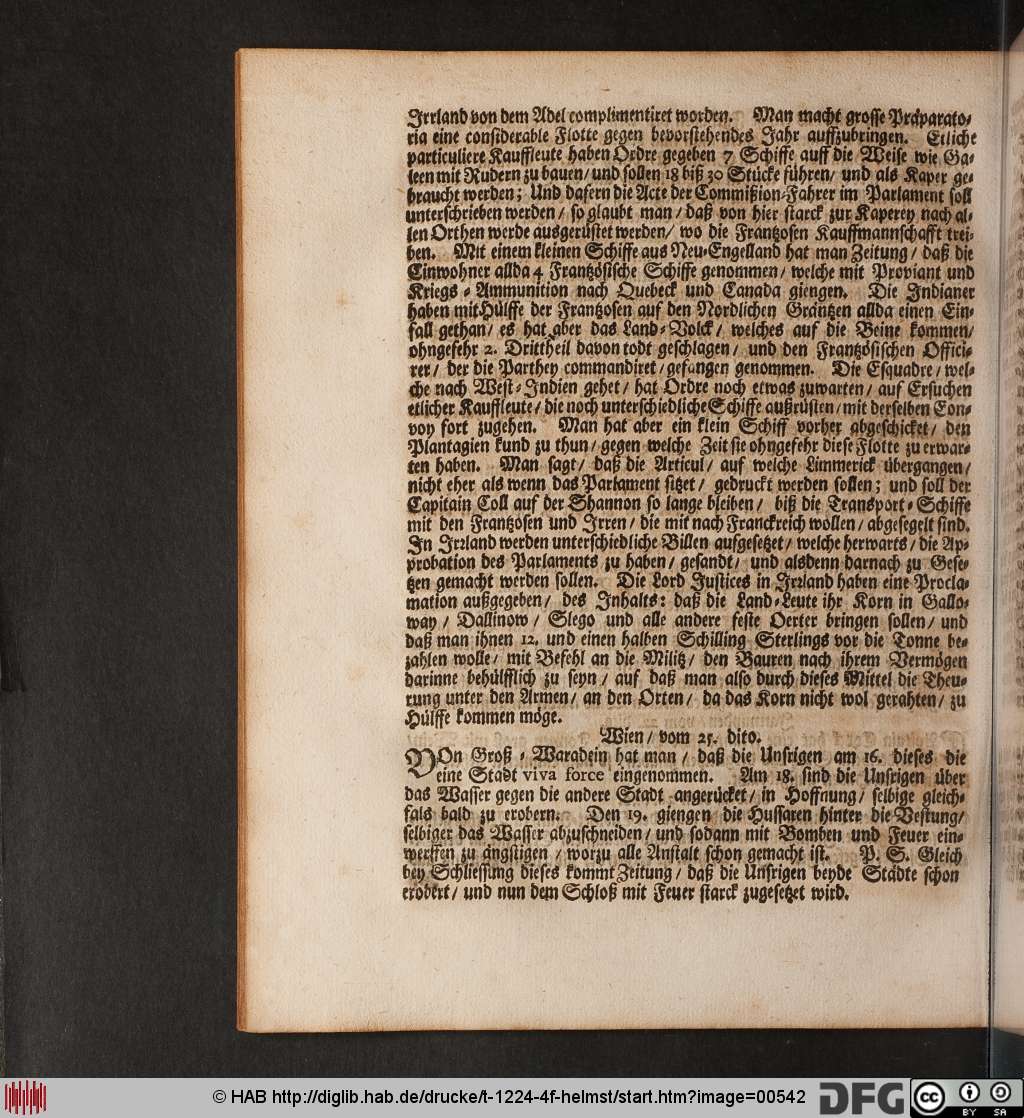 Irrland von dem Adel complimentiret worden. Man macht grosse Præparato-
ria eine considerable Flotte gegen bevorstehendes Jahr auffzubringen. Etliche
particuliere Kauffleute haben Ordre gegeben 7 Schiffe auff die Weise wie Ga-
leen mit Rudern zu bauen/ und sollen 18 biß 30 Stücke führen/ und als Kaper ge-
braucht werden; Und dafern die Acte der Commißion-Fahrer im Parlament soll
unterschrieben werden/ so glaubt man/ daß von hier starck zur Kaperey nach al-
len Orthen werde ausgerüstet werden/ wo die Frantzosen Kauffmannschafft trei-
ben. Mit einem kleinen Schiffe aus Neu-Engelland hat man Zeitung/ daß die
Einwohner allda 4 Frantzösische Schiffe genommen/ welche mit Proviant und
Kriegs-Ammunition nach Quebeck und Canada giengen. Die Indianer
haben mit Hülffe der Frantzosen auf den Nordlichen Gräntzen allda einen Ein-
fall gethan/ es hat aber das Land-Volck/ welches auf die Beine kommen/
ohngefehr 2. Drittheil davon todt geschlagen/ und den Frantzösischen Offici-
rer/ der die Parthey commandiret/ gefangen genommen. Die Esquadre/ wel-
che nach West-Indien gehet/ hat Ordre noch etwas zuwarten/ auf Ersuchen
etlicher Kauffleute/ die noch unterschiedliche Schiffe außrüsten/ mit derselben Con-
voy fort zugehen. Man hat aber ein klein Schiff vorher abgeschicket/ den
Plantagien kund zu thun/ gegen welche Zeit sie ohngefehr diese Flotte zu erwar-
ten haben. Man sagt/ daß die Articul/ auf welche Limmerick übergangen/
nicht eher als wenn das Parlament sitzet/ gedruckt werden sollen; und soll der
Capitain Coll auf der Shannon so lange bleiben/ biß die Transport-Schiffe
mit den Frantzosen und Irren/ die mit nach Franckreich wollen/ abgesegelt sind.
In Irrland werden unterschiedliche Billen aufgesetzet/ welche herwarts/ die Ap-
probation des Parlaments zu haben/ gesandt/ und alsdenn darnach zu Gese-
tzen gemacht werden sollen. Die Lord Justices in Irrland haben eine Procla-
mation außgegeben/ des Inhalts: daß die Land-Leute ihr Korn in Gallo-
way/ Dallinow/ Slego und alle andere feste Oerter bringen sollen/ und
daß man ihnen 12. und einen halben Schilling Sterlings vor die Tonne be-
zahlen wolle/ mit Befehl an die Militz/ den Bauren nach ihrem Vermögen
darinne behülfflich zu seyn/ auf daß man also durch dieses Mittel die Theu-
rung unter den Armen/ an den Orten/ da das Korn nicht wol gerahten/ zu
Hülffe kommen möge.
Wien/ vom 25. dito.
VOn Groß-Waradein hat man/ daß die Unsrigen am 16. dieses die
eine Stadt viva force eingenommen. Am 18. sind die Unsrigen über
das Wasser gegen die andere Stadt angerücket/ in Hoffnung/ selbige gleich-
fals bald zu erobern. Den 19. giengen die Hussaren hinter die Vestung/
selbiger das Wasser abzuschneiden/ und sodann mit Bomben und Feuer ein-
werffen zu ängstigen/ worzu alle Anstalt schon gemacht ist. P. S. Gleich
bey Schliessung dieses kommt Zeitung/ daß die Unsrigen beyde Städte schon
erobert/ und nun dem Schloß mit Feuer starck zugesetzet wird.
© HAB http://diglib.hab.de/drucke/t-1224-4f-helmst/start.htm?image=00542
DFG
cc
BY SA